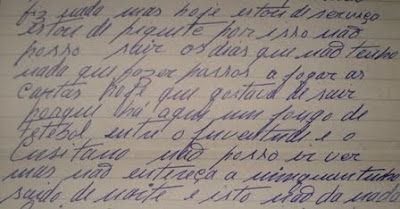 fiz nada mas hoje estou de serviço
estou de piquete por isso não
posso sair os dias que não tenho
nada que fazer passos a jogar as
cartas hoje que gostava de sair
porque há aqui um jougo de
fetebol entre o Juventude e o
Lusitano não posso ir ver
mas não entireça a
saido de noite e isto não da nada